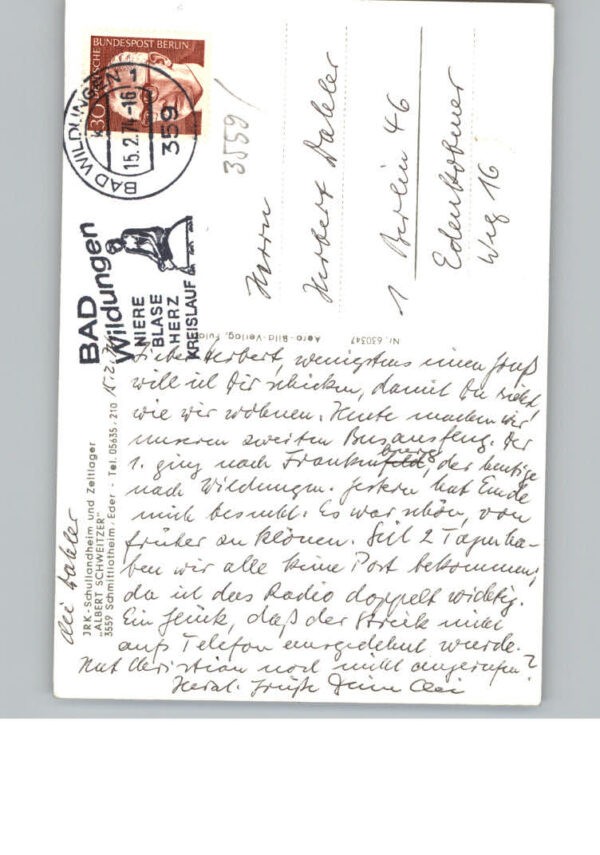 30
DEUTSCHE BUNDESPOST BERLIN
BAD WILDUNGEN 1
15.2.74-16
359
BAD
Wildungen
NIERE
BLASE
HERZ
KREISLAUF
3559/
Herrn
Herbert Dahler
1 Berlin 46
Edenkobener
Weg 16
Aero-Bild-Verlag, Fulda
Nr. 630347
JRK-Schullandheim und Zeltlager
„ALBERT SCHWEITZER"
3559 Schmittlotheim/Eder - Tel. 05635/210
15.2.74
Dahler
Lieber Herbert, wenigstens einen Gruß
will ich Dir schicken, damit Du siehst,
wie wir wohnen. Heute machen wir
unseren zweiten Busausflug. Der
1. ging nach Frankenberg, der heutige
nach Wildungen. Gestern hat
mich besucht. Es war schön, von
früher zu klönen. Seit 2 Tagen ha-
ben wir alle keine Post bekommen,
da ist das Radio doppelt wichtig.
Ein Glück, daß der Streik nicht
aufs Telefon ausgedehnt wurde.
Hat Christian noch nicht angerufen?
Herzl. Grüße Deine